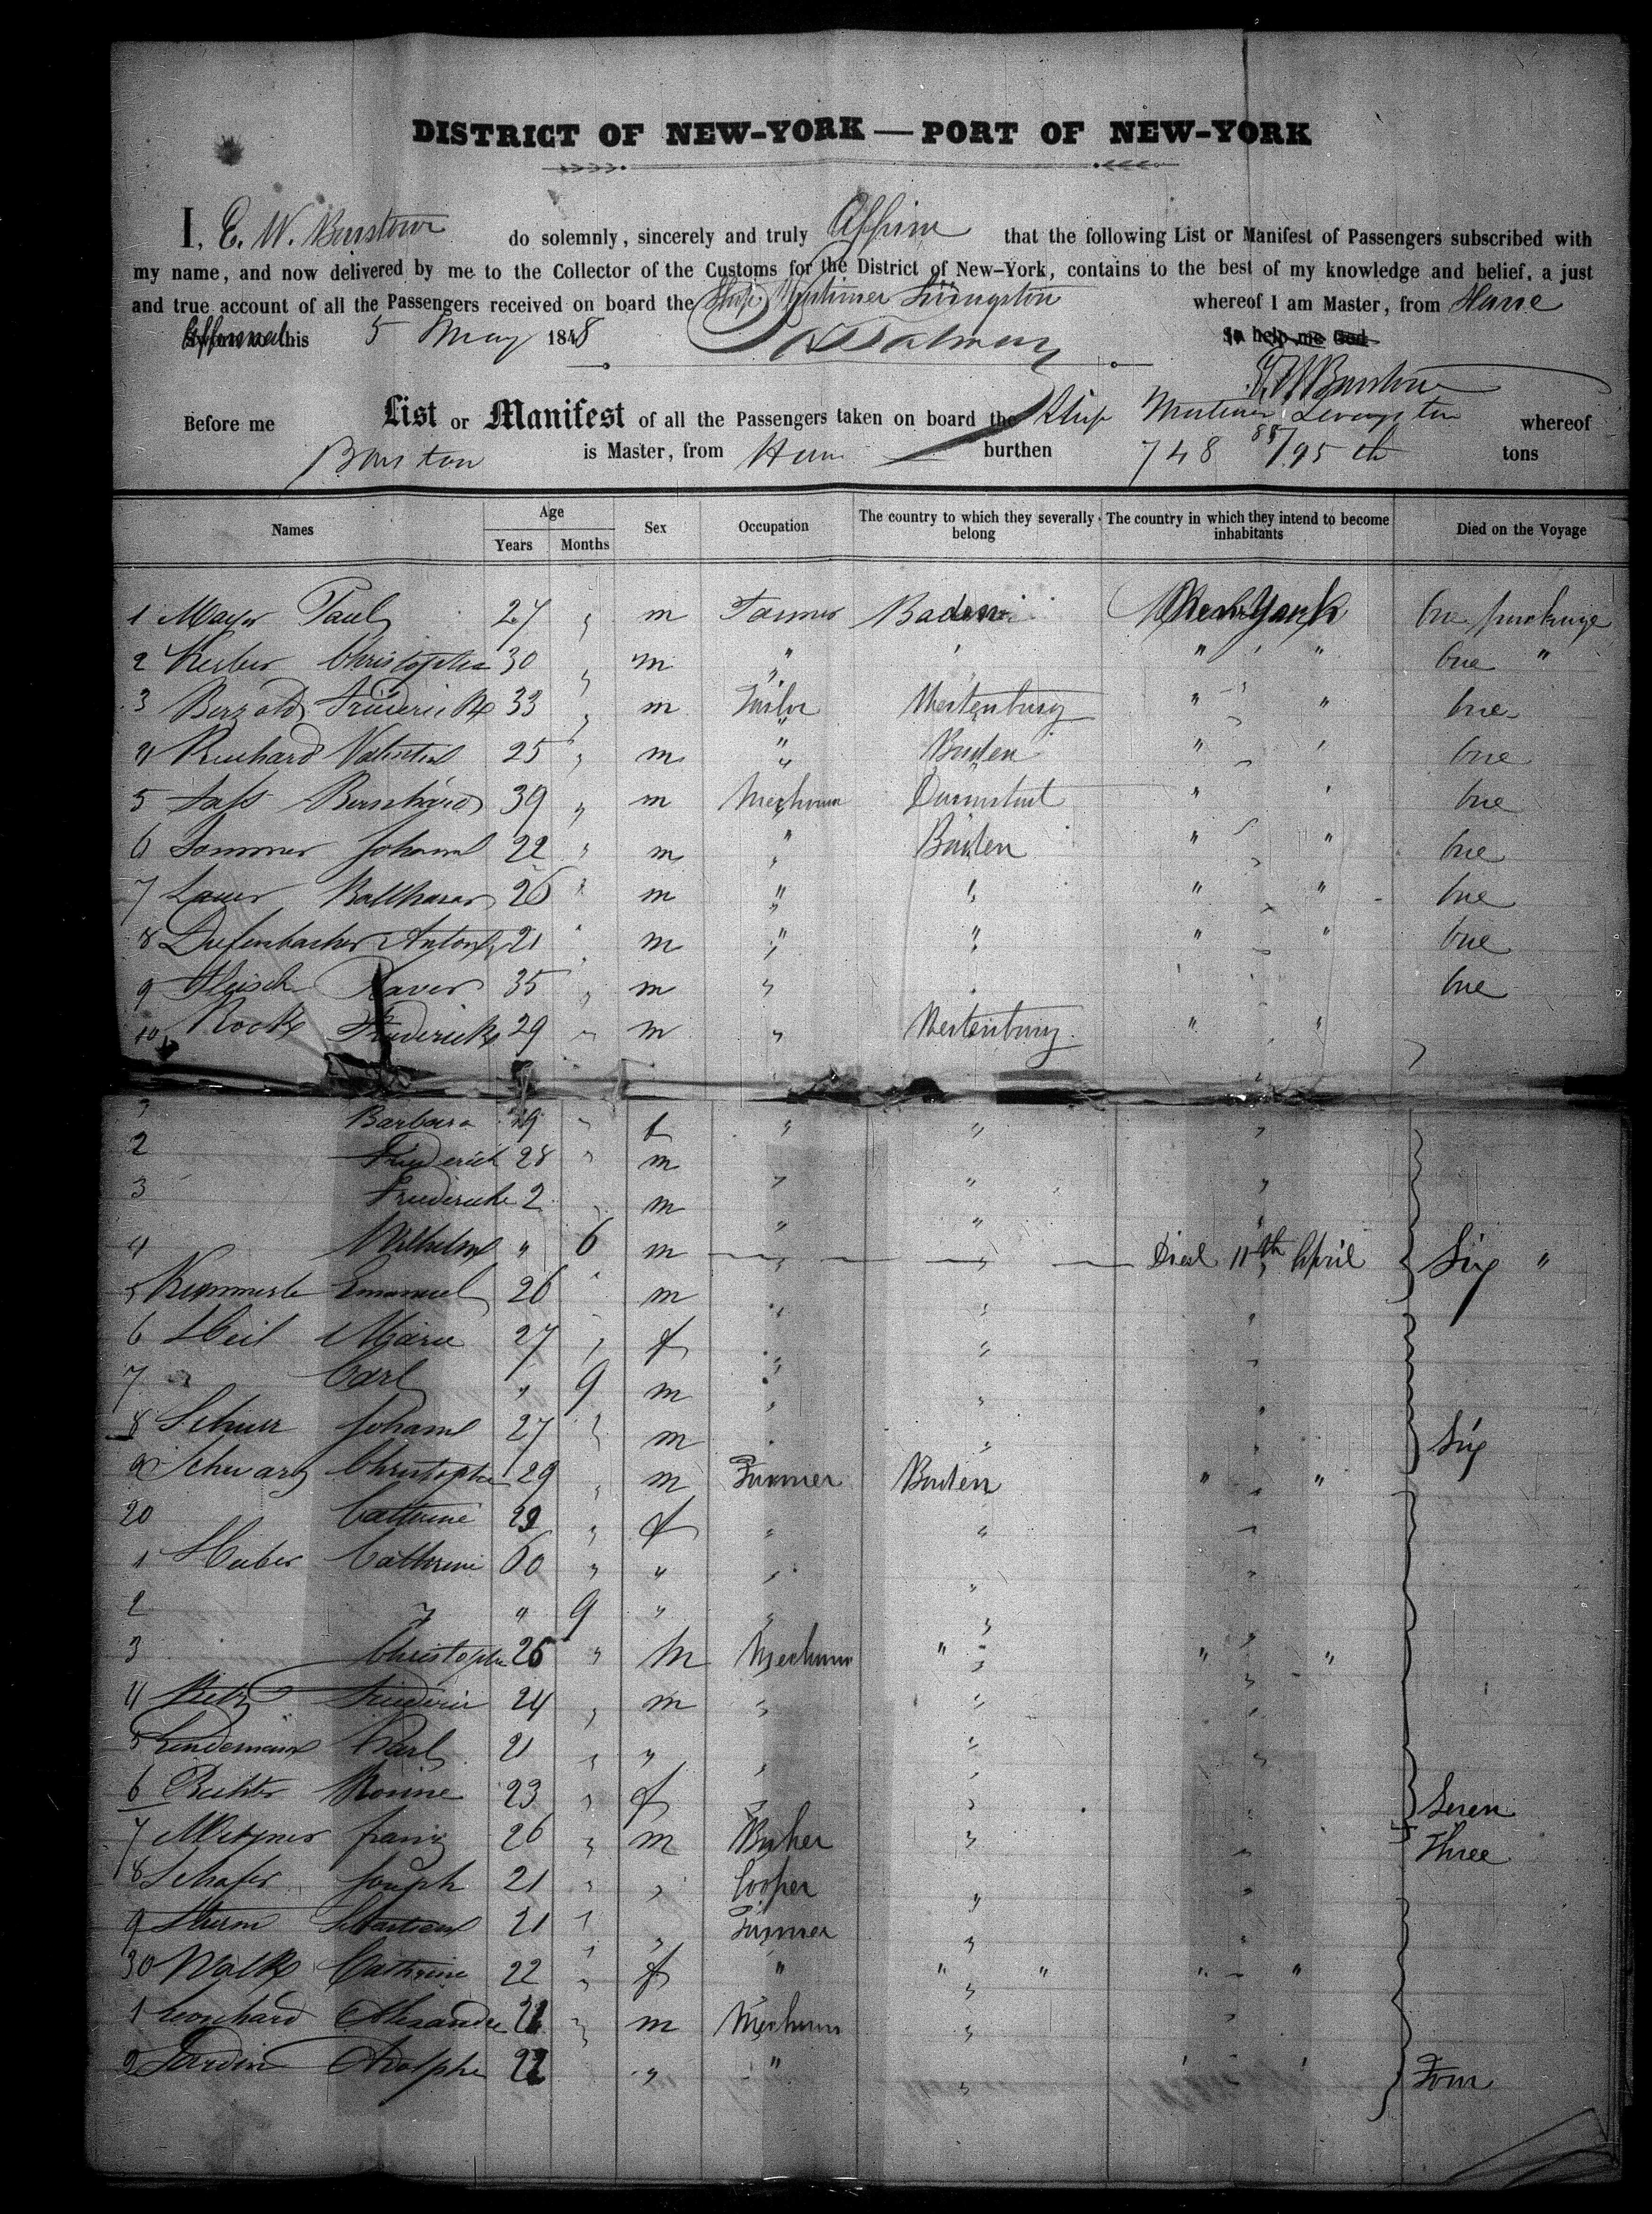 DISTRICT OF NEW-YORK — PORT OF NEW-YORK
I, E. W. Barstow do solemnly, sincerely and truly Affirm that the following List or Manifest of Passengers subscribed with
my name, and now delivered by me to the Collector of the Customs for the District of New-York, contains to the best of my knowledge and belief, a just
and true account of all the Passengers received on board the Ship Mortimer Livingston whereof I am Master, from Havre
Affirmed this 5 May 1848 So help me God
E. W. Barstow
Before me List or Manifest of all the Passengers taken on board the Ship Mortimer Livingston whereof
Barstow is Master, from Havre burthen 748 88/95 th tons
Names Age Years Months Sex Occupation The country to which they severally belong The country in which they intend to become inhabitants Died on the Voyage
1 Mayer Paul 27 " m Farmer Baden New York One package
2 Kerber Christophe 30 " m " " " " One "
3 Berzold Friederick 33 " m Tailor " " One
4 Ruchard Valentin 25 " m " Baden " " One
5 Bernhard 39 " m Mechanic Darmstadt " " One
6 Sommer Johann 22 " m " Baden " " One
7 Lauer Balthasar 26 " m " " " " One
8 Diefenbacher Anton 21 " m " " " " One
9 Xaver 35 " m " " One
10 Rock Friederick 29 " m " " "
Barbara 29 " f " " "
2 Friederich 28 " m
3 Friedericke 2 " m " " "
4 Wilhelm " 6 m " " Died 11th April Six "
5 Kummerle Emanuel 26 " m " " "
6 Heil Marie 27 " f " " "
7 " Carl " 9 m " " "
8 Schurr Johann 27 " m " " " Six
9 Schwarz Christophe 29 " m Farmer Baden " "
20 Catherine 29 " f " " "
1 Huber Catherine 60 " " " " "
2 " " 9 " " " "
3 Christophe 26 " M Mechanic " " "
4 Betz Friederic 24 " m " " "
5 Lindemann Karl 21 " " " " "
6 Richter 23 " f " " " Seven
7 Metzner Franz 26 " m Baker " " Three
8 Schafer Joseph 21 " " Cooper " "
9 Sturm Sebastian 21 " " Farmer " "
30 Walk Catherine 22 " f " " " " "
1 Leonhard Alexandre 21 " m Mechanic " "
2 Jardin Adolphe 22 " " " " " Four